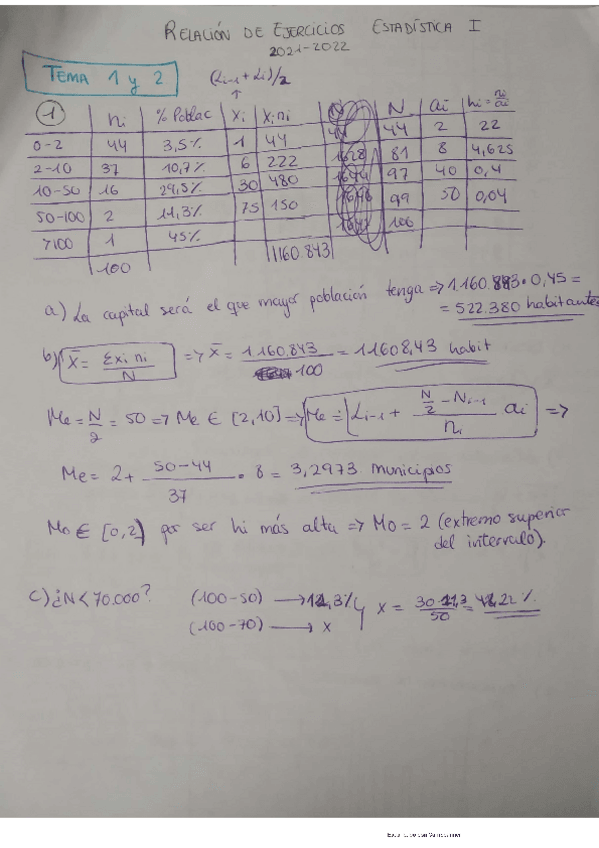 RELACIÓN DE EJERCICIOS ESTADÍSTICA I
2021-2022
TEMA 1 y 2
(Li-1 + Li)/2
1
ni % Poblac xi xi ni N ai hi = ni/ai
0-2 44 3,5% 1 44 44 2 22
2-10 37 10,7% 6 222 1628 81 8 4,625
10-50 16 29,5% 30 480 1644 97 40 0,4
50-100 2 11,3% 75 150 1646 99 50 0,04
>100 1 45% 1647 100
100 1160.843
a) La capital será el que mayor población tenga => 1.160.843 · 0,45 =
= 522.380 habitantes
b) x̄ = Σxi ni / N => x̄ = 1.160.843 / 100 = 11608,43 habit
Me = N/2 = 50 => Me ∈ [2,10] => Me = Li-1 + (N/2 - Ni-1)/ni ai =>
Me = 2 + (50-44)/37 · 8 = 3,2973 municipios
Mo ∈ [0,2) por ser hi más alta => Mo = 2 (extremo superior
del intervalo).
c) ¿N<70.000? (100-50) → 11,3%
(100-70) → x
x = 30·11,3 / 50 =